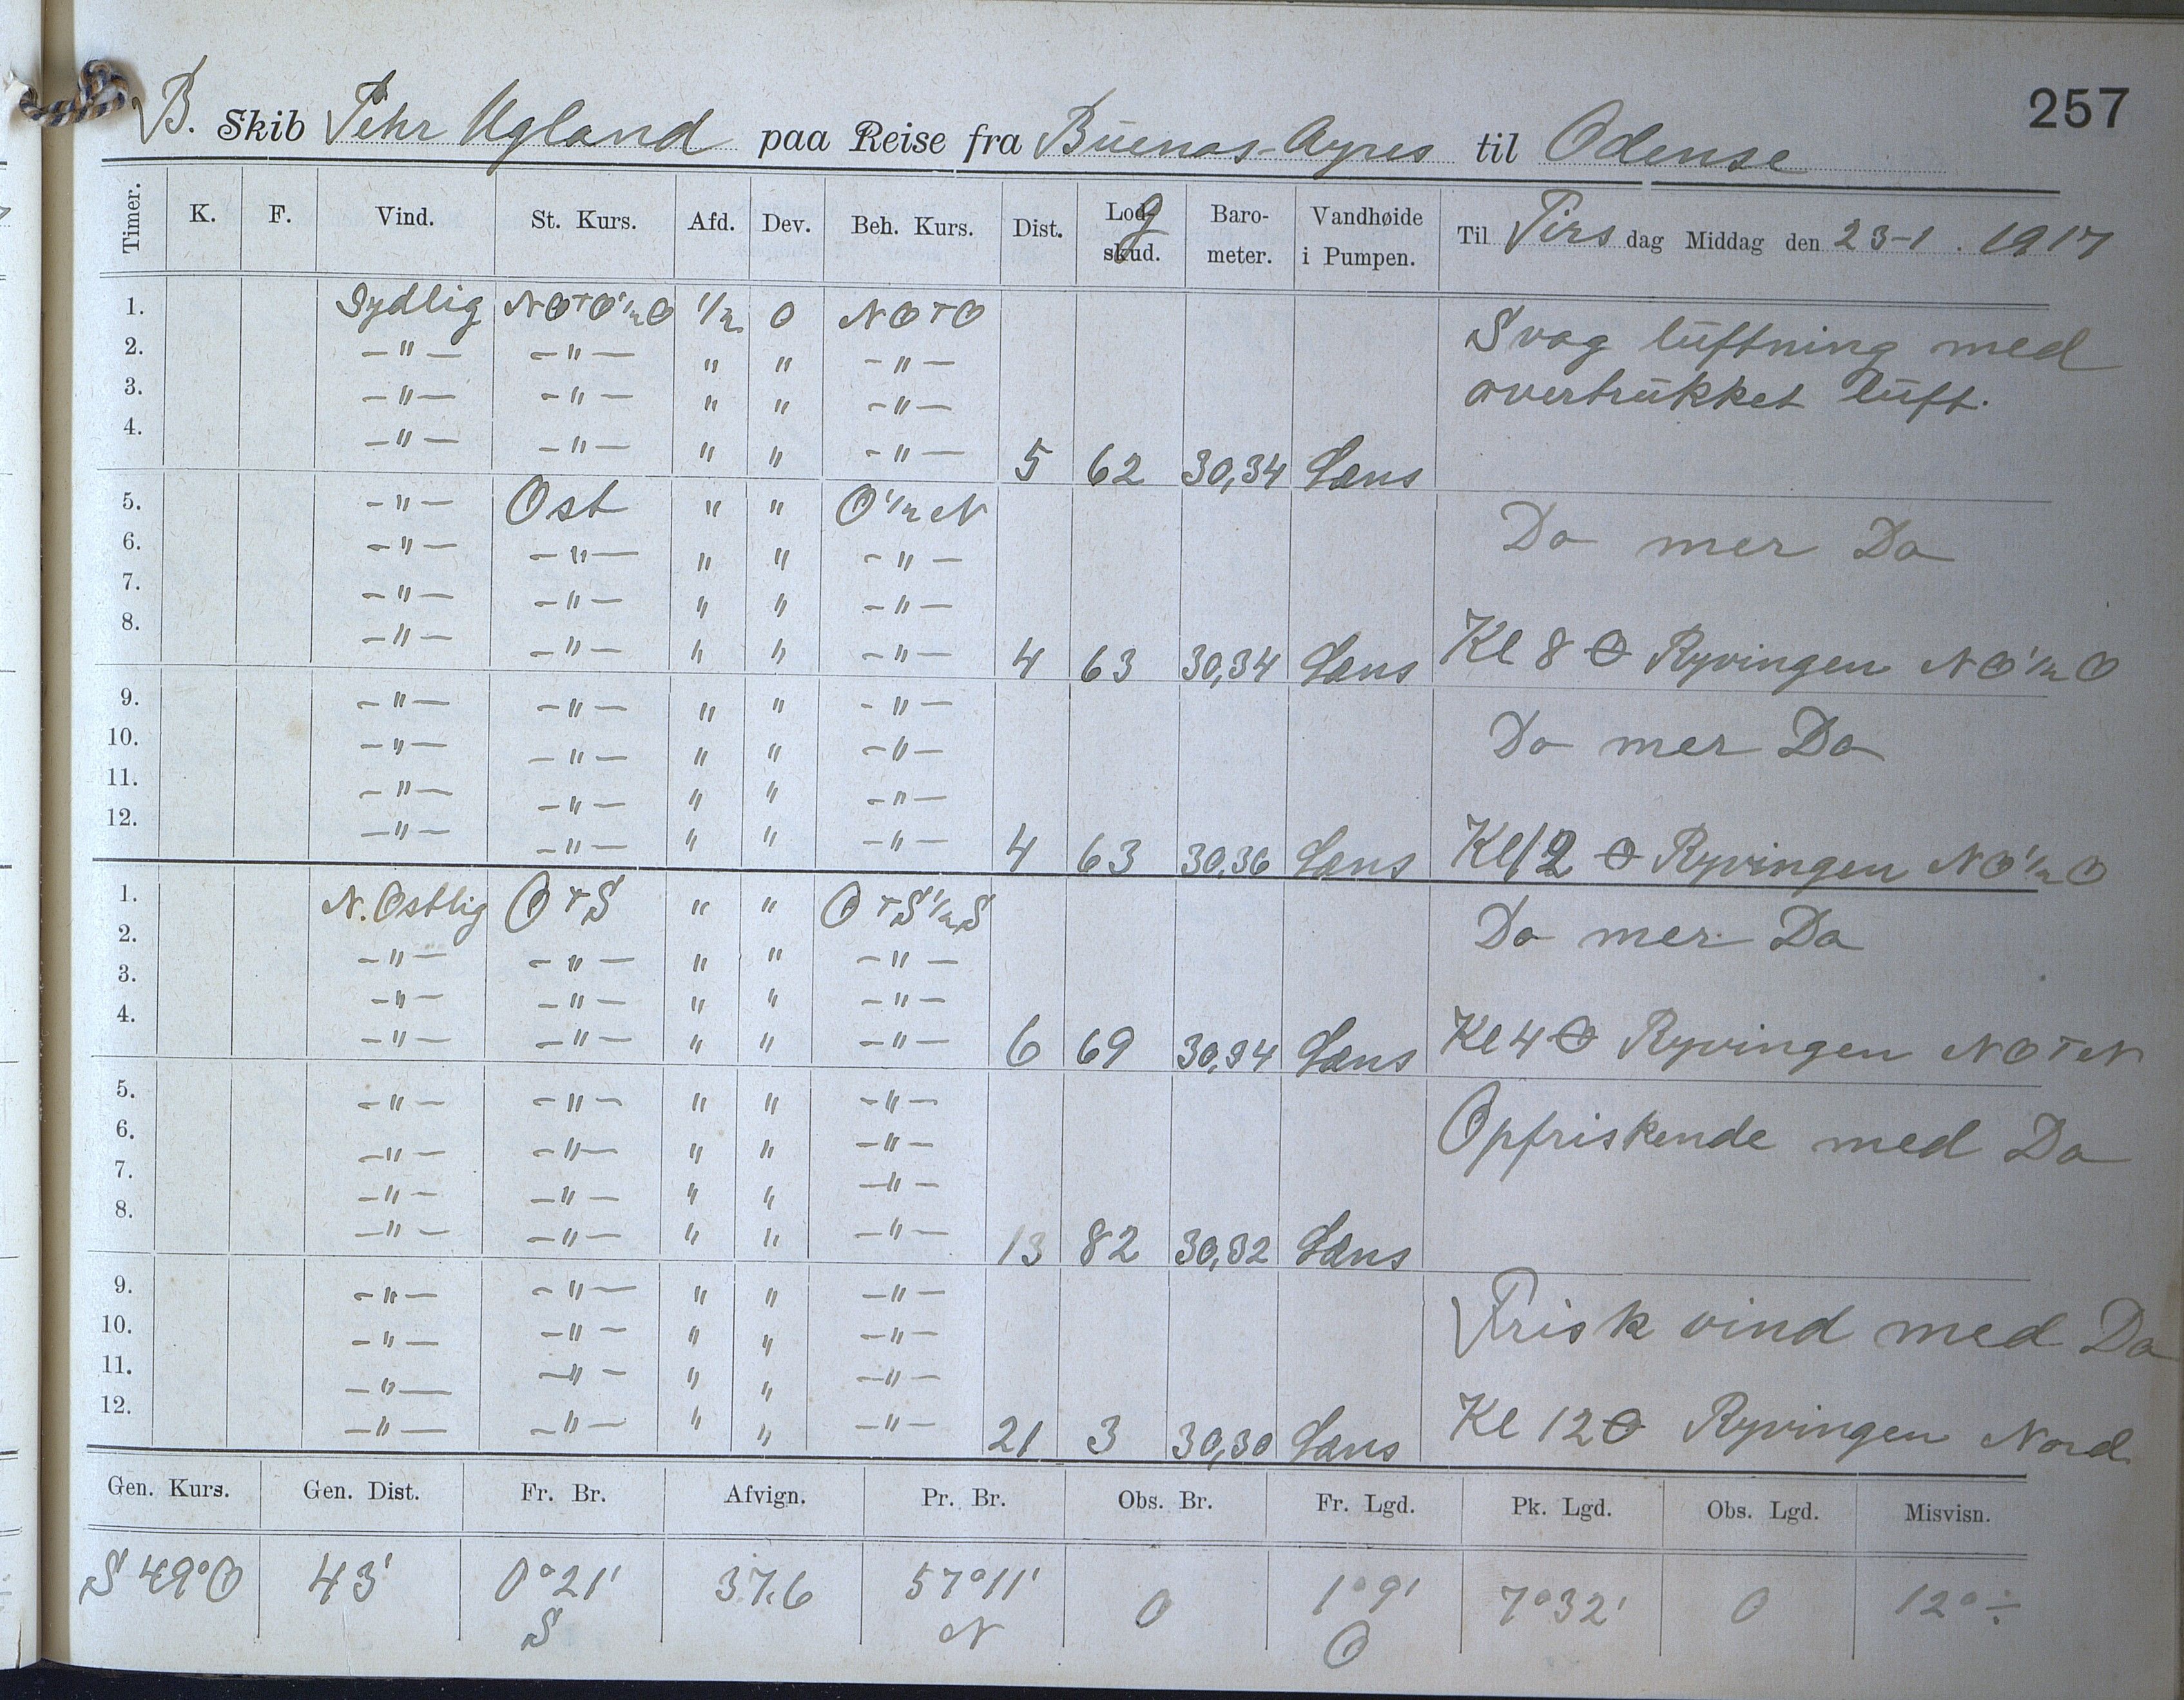 257
B. Skib Tehr Ugland paa Reise fra Buenos-Ayres til Odense
Timer. K. F. Vind. St. Kurs. Afd. Dev. Beh. Kurs. Dist. Logskud. Barometer. Vandhøide i Pumpen. Til Tirsdag Middag den 23-1. 1917
1. Sydlig NOTO1/2O 1/2 0 NOTO Svag luftning med
2. -"- -"- " " -"- overtrukket luft.
3. -"- -"- " " -"-
4. -"- -"- " " -"- 5 62 30,34 Læns
5. -"- Ost " " O1/2N Do mer Do
6. -"- -"- " " -"-
7. -"- -"- " " -"-
8. -"- -"- " " -"- 4 63 30,34 Læns Kl 8 Ryvingen NO1/2O
9. -"- -"- " " -"- Do mer Do
10. -"- -"- " " -"-
11. -"- -"- " " -"-
12. -"- -"- " " -"- 4 63 30,36 Læns Kl 12 Ryvingen NO1/2O
1. N.Ostlig OTS " " OTS1/2S Do mer Do
2. -"- -"- " " -"-
3. -"- -"- " " -"-
4. -"- -"- " " -"- 6 69 30,34 Læns Kl 4 Ryvingen NOTN
5. -"- -"- " " -"- Opfriskende med Do
6. -"- -"- " " -"-
7. -"- -"- " " -"-
8. -"- -"- " " -"- 13 82 30,32 Læns
9. -"- -"- " " -"- Frisk vind med Do
10. -"- -"- " " -"-
11. -"- -"- " " -"-
12. -"- -"- " " -"- 21 3 30,30 Læns Kl 12 Ryvingen Nord.
Gen. Kurs. Gen. Dist. Fr. Br. Afvign. Pr. Br. Obs. Br. Fr. Lgd. Pk. Lgd. Obs. Lgd. Misvisn.
S 49°O 43' 0°21' 37.6 57°11' 0 1°9' 7°32' 0 12° ÷
S N O